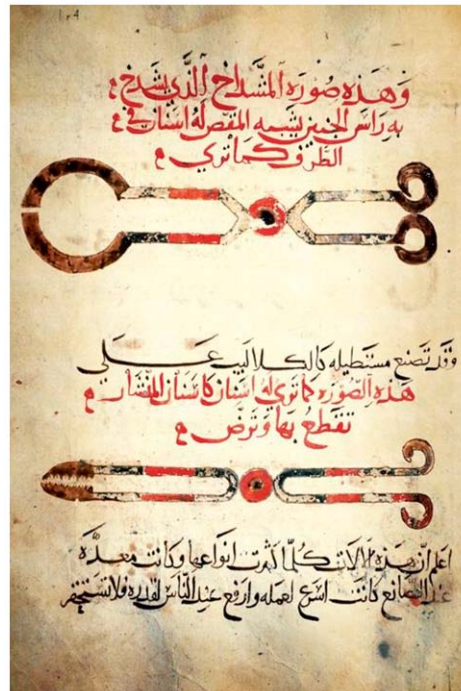 ١٢٤
وهذه صورة المشداخ الذي يشدخ
به رأس الجنين يشبه المقص له اسنان في
الطرف كما تري
وقد تصنع مستطيله كالكلاليب علي
هذه الصورة كما تري له اسنان كاسنان المنشار
تقطع بها وترض
اعلم ان هذه الالات كلما كثرت انواعها وكانت معدّة
عند الصانع كانت اسرع لعمله وارفع عند الناس لقدره فلا تستحقر